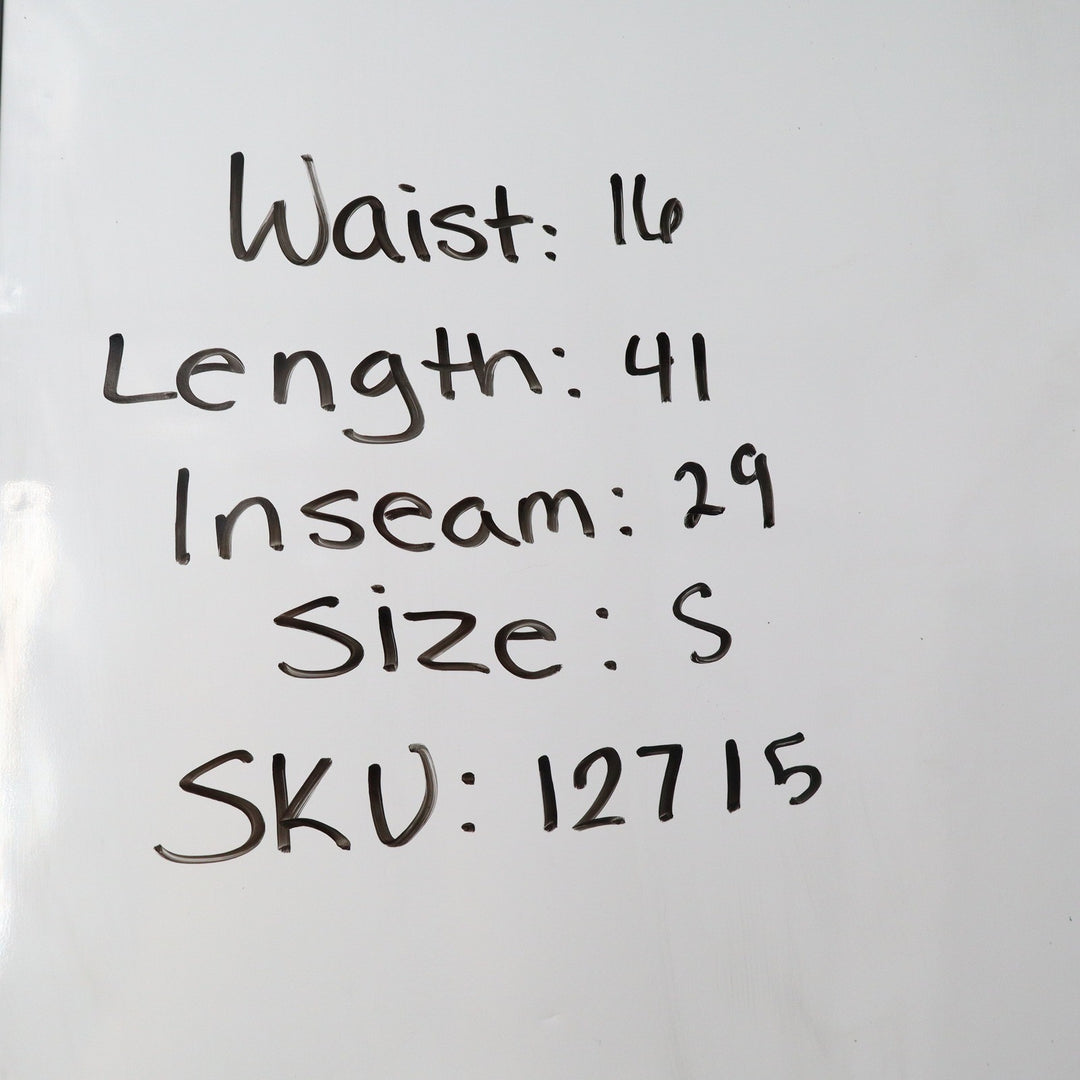 Waist: 16
Length: 41
Inseam: 29
Size: S
SKU: 12715